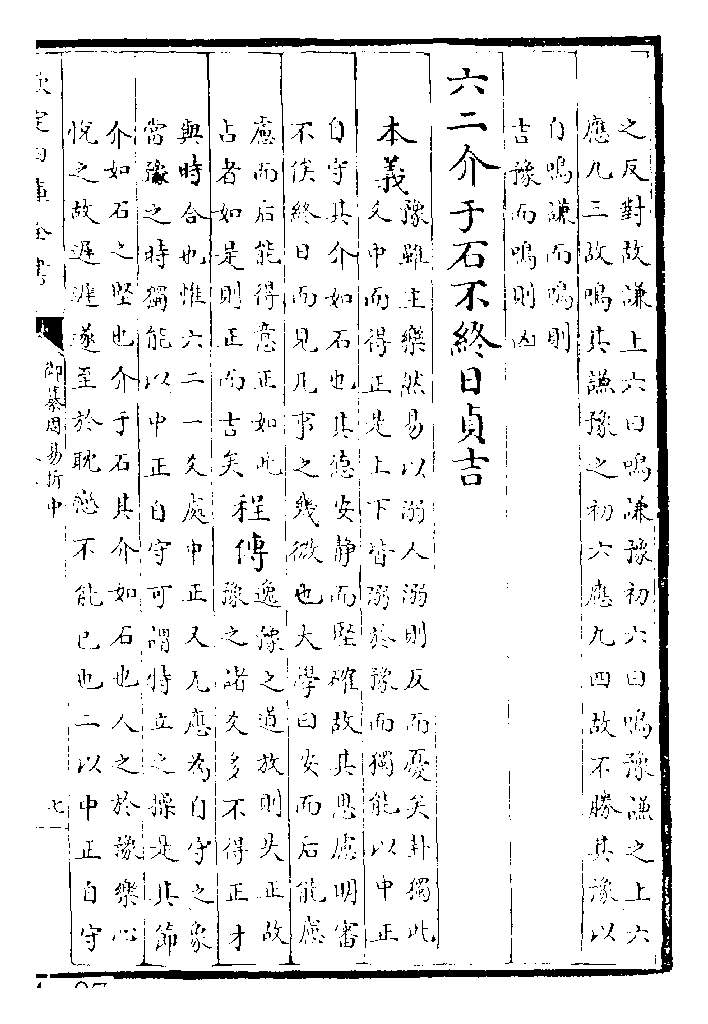 之反對故謙上六曰鳴謙豫初六曰鳴豫謙之上六
應九三故鳴其謙豫之初六應九四故不勝其豫以
自鳴謙而鳴則
吉豫而鳴則凶
六二介于石不終日貞吉
本義
豫雖主樂然易以溺人溺則反而憂矣卦獨此
爻中而得正是上下皆溺於豫而獨能以中正
自守其介如石也其德安靜而堅確故其思慮明審
不俟終日而見凡事之幾微也大學曰安而后能慮
慮而后能得意正如此
占者如是則正而吉矣
程傳
逸豫之道放則失正故
豫之諸爻多不得正才
與時合也惟六二一爻處中正又无應為自守之象
當豫之時獨能以中正自守可謂特立之操是其節
介如石之堅也介于石其介如石也人之於豫樂心
悅之故遲遲遂至於耽戀不能已也二以中正自守
欽定四庫全書
御纂周易折中
七